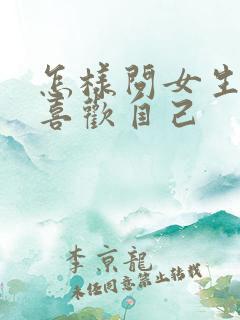 怎樣問女生
喜歡自己
李京龍
未经同意禁止转载